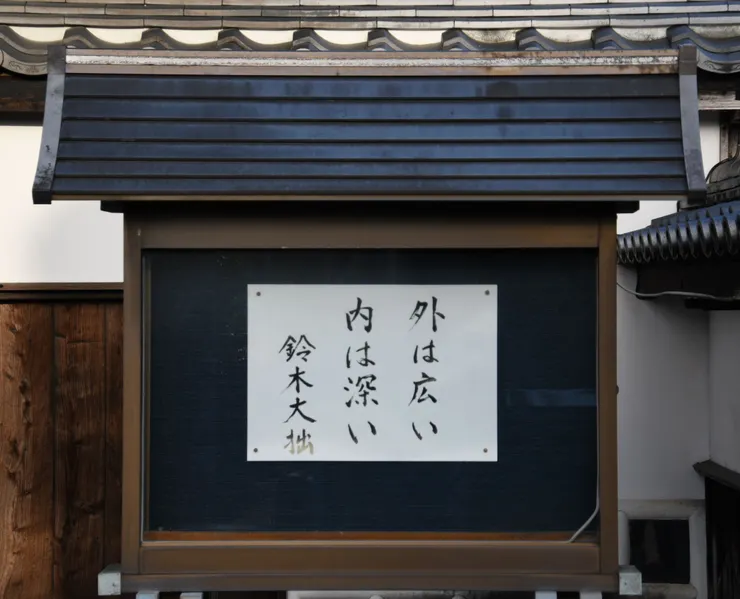 外は広い
内は深い
鈴木大拙